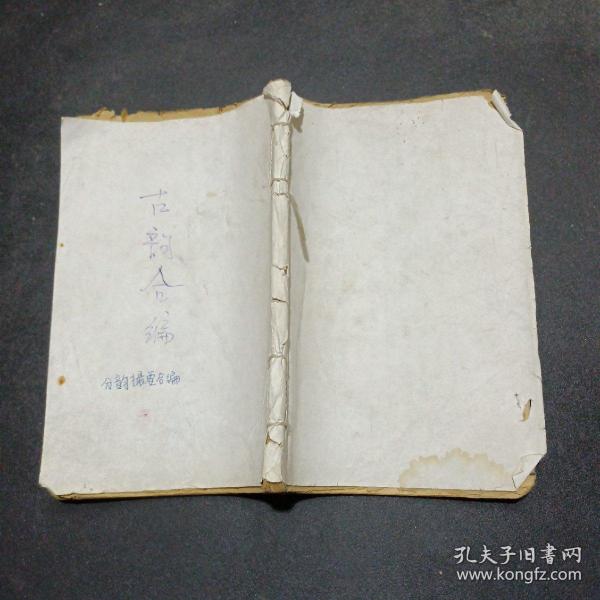 古韵合编
分韵撮要合编
孔夫子旧書网
www.kongfz.com